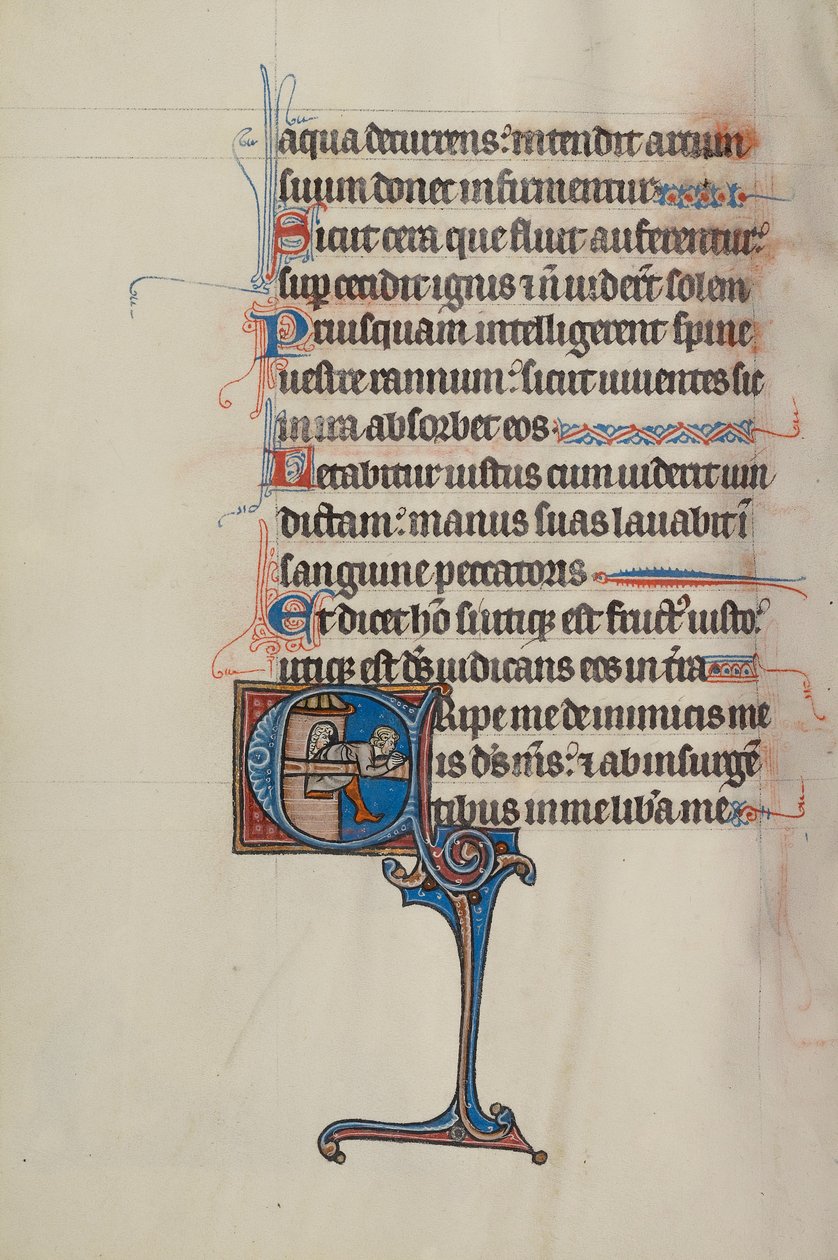 aqua decurrens: intendit arcum
suum donec infirmentur
Sicut cera que fluit auferentur:
sup̱ cecidit ignis ⁊ ñ uider̃t solem
Priusquam intelligerent spine
uestre rannum: sicut uiuentes sic
in ira absorbet eos.
Letabitur iustus cum uiderit uin
dictam: manus suas lauabit ĩ
sanguine peccatoris
Et dicet hõ si utiqꝫ est fruct᷒ iusto:
utiqꝫ est d̃s iudicans eos in t̃ra
ERipe me de inimicis me
is d̃s m̃s: ⁊ ab insurgẽ
tibus in me lib̃a me